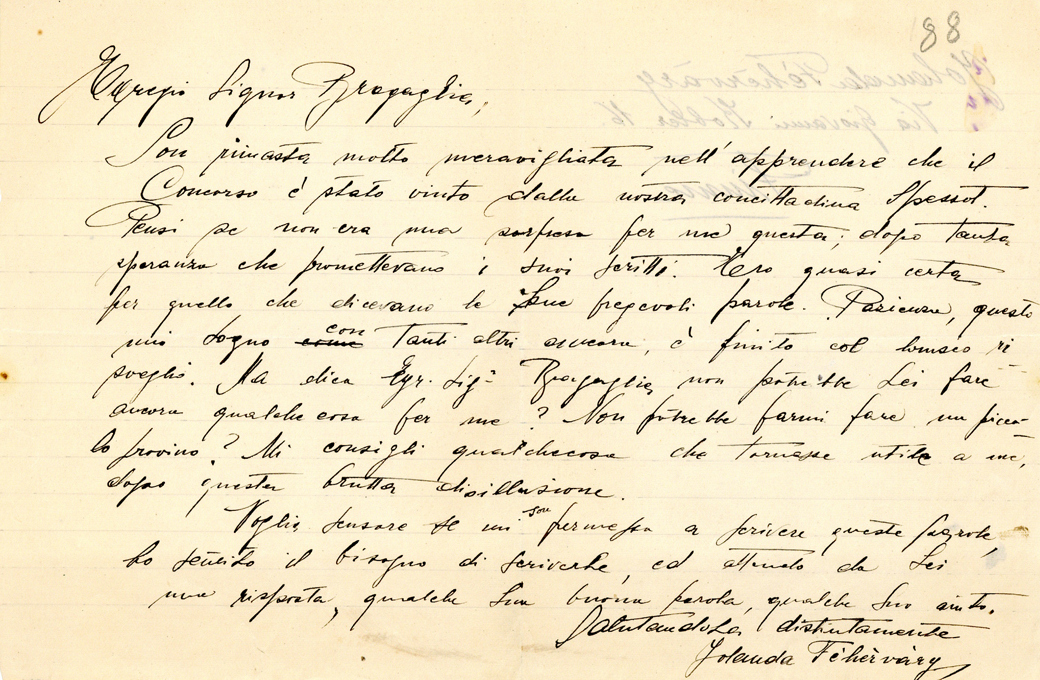 88
Egregio Signor Bragaglia,
Son rimasta molto meravigliata nell'apprendere che il
Concorso è stato vinto dalla nostra concittadina Spessot.
Pensi se non era una sorpresa per me questa; dopo tanta
speranza che promettevano i suoi scritti. Ero quasi certa
per quello che dicevano le Sue pregevoli parole. Pazienza, questo
mio sogno come con tanti altri ancora, è finito col brusco ri-
sveglio. Ma dica Egr. Sig. Bragaglia, non potrebbe Lei fare
ancora qualchecosa per me? Non potrebbe farmi fare un picco-
lo provino? Mi consigli qualchecosa che tornasse utile a me,
dopo questa brutta disillusione.
Voglia scusare se mi son permessa a scrivere queste parole,
ho sentito il bisogno di scriverle, ed attendo da Lei
una risposta, qualche Sua buona parola, qualche Suo aiuto.
SalutandoLa distintamente
Jolanda Fèhèrvàry
Jolanda Fèhèrvàry
Via Giovanni Kobler 16
Fiume